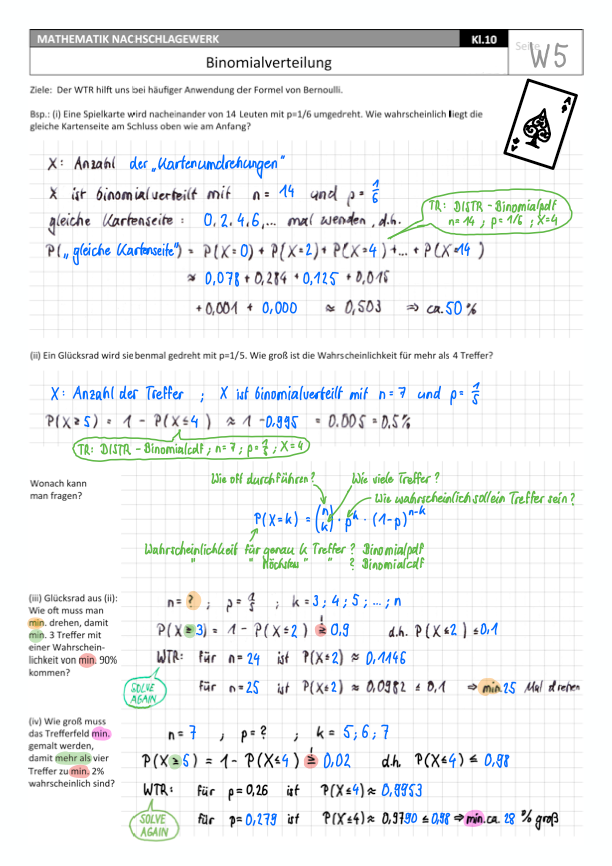 MATHEMATIK NACHSCHLAGEWERK Kl.10
Seite W5
Binomialverteilung
Ziele: Der WTR hilft uns bei häufiger Anwendung der Formel von Bernoulli.
Bsp.: (i) Eine Spielkarte wird nacheinander von 14 Leuten mit p=1/6 umgedreht. Wie wahrscheinlich liegt die
gleiche Kartenseite am Schluss oben wie am Anfang?
A
A
X: Anzahl der „Kartenumdrehungen"
X ist binomialverteilt mit n = 14 und p = 1/6
gleiche Kartenseite: 0, 2, 4, 6, ... mal wenden, d.h.
TR: DISTR - Binomialpdf
n = 14 ; p = 1/6 ; X=4
P(„gleiche Kartenseite") = P(X=0) + P(X=2) + P(X=4) +...+ P(X=14)
≈ 0,078 + 0,284 + 0,125 + 0,015
+ 0,001 + 0,000 ≈ 0,503 ⇒ ca. 50 %
(ii) Ein Glücksrad wird siebenmal gedreht mit p=1/5. Wie groß ist die Wahrscheinlichkeit für mehr als 4 Treffer?
X: Anzahl der Treffer ; X ist binomialverteilt mit n = 7 und p = 1/5
P(X≥5) = 1 - P(X≤4) ≈ 1 - 0,995 = 0.005 = 0.5%
TR: DISTR - Binomialcdf ; n=7 ; p= ; X=4
Wonach kann
man fragen?
Wie oft durchführen? Wie viele Treffer?
Wie wahrscheinlich soll ein Treffer sein?
P(X=k) = (n k) · p^k · (1-p)^n-k
Wahrscheinlichkeit für genau k Treffer? Binomialpdf
" " Höchstens " " ? Binomialcdf
(iii) Glücksrad aus (ii):
Wie oft muss man
min. drehen, damit
min. 3 Treffer mit
einer Wahrschein-
lichkeit von min. 90%
kommen?
n = ? ; p = 1/5 ; k = 3 ; 4 ; 5 ; ... ; n
P(X≥3) = 1 - P(X≤2) ≥! 0,9 d.h. P(X≤2) ≤ 0,1
WTR: für n = 24 ist P(X≤2) ≈ 0,1146
SOLVE
AGAIN
für n = 25 ist P(X≤2) ≈ 0,0982 ≤ 0,1 ⇒ min. 25 Mal drehen
(iv) Wie groß muss
das Trefferfeld min.
gemalt werden,
damit mehr als vier
Treffer zu min. 2%
wahrscheinlich sind?
n = 7 , p = ? ; k = 5 ; 6 ; 7
P(X≥5) = 1 - P(X≤4) ≥! 0,02 d.h. P(X≤4) ≤ 0,98
WTR: für p = 0,26 ist P(X≤4) ≈ 0,9953
SOLVE
AGAIN
für p = 0,279 ist P(X≤4) ≈ 0,9790 ≤ 0,98 ⇒ min. ca. 28 % groß